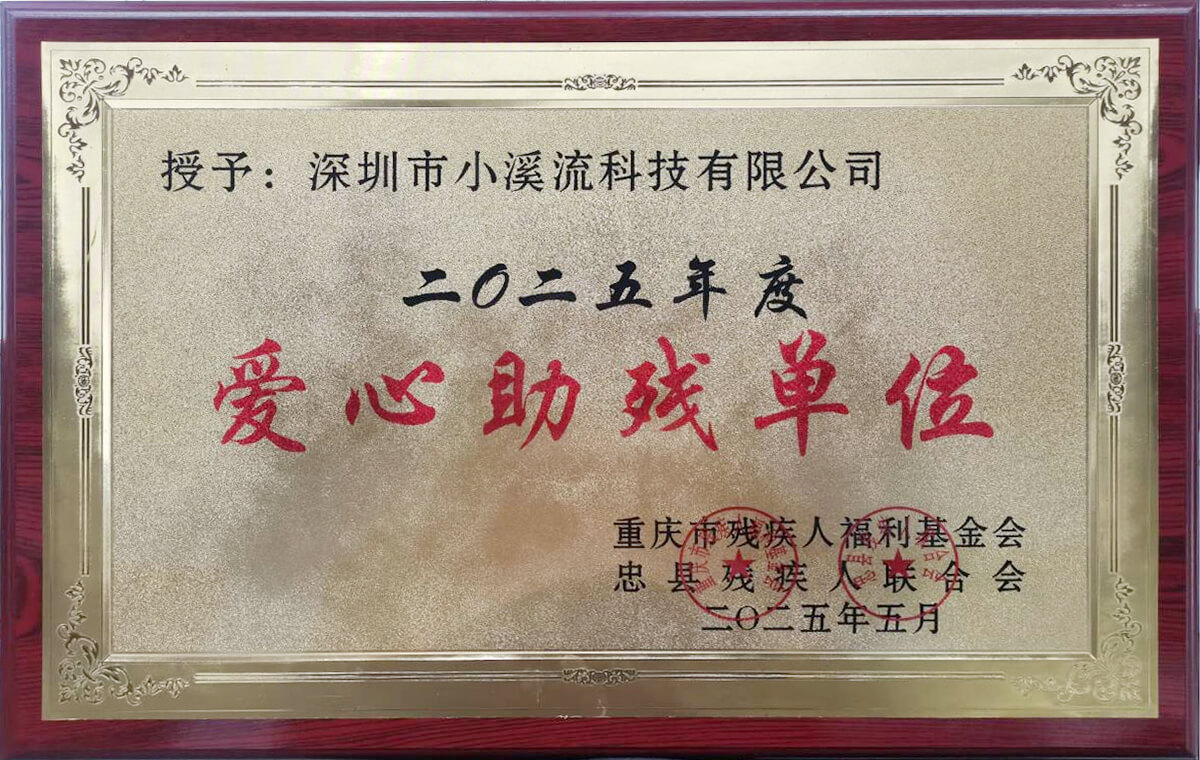 授予：深圳市小溪流科技有限公司
二〇二五年度
爱心助残单位
重庆市残疾人福利基金会
忠县残疾人联合会
二〇二五年五月